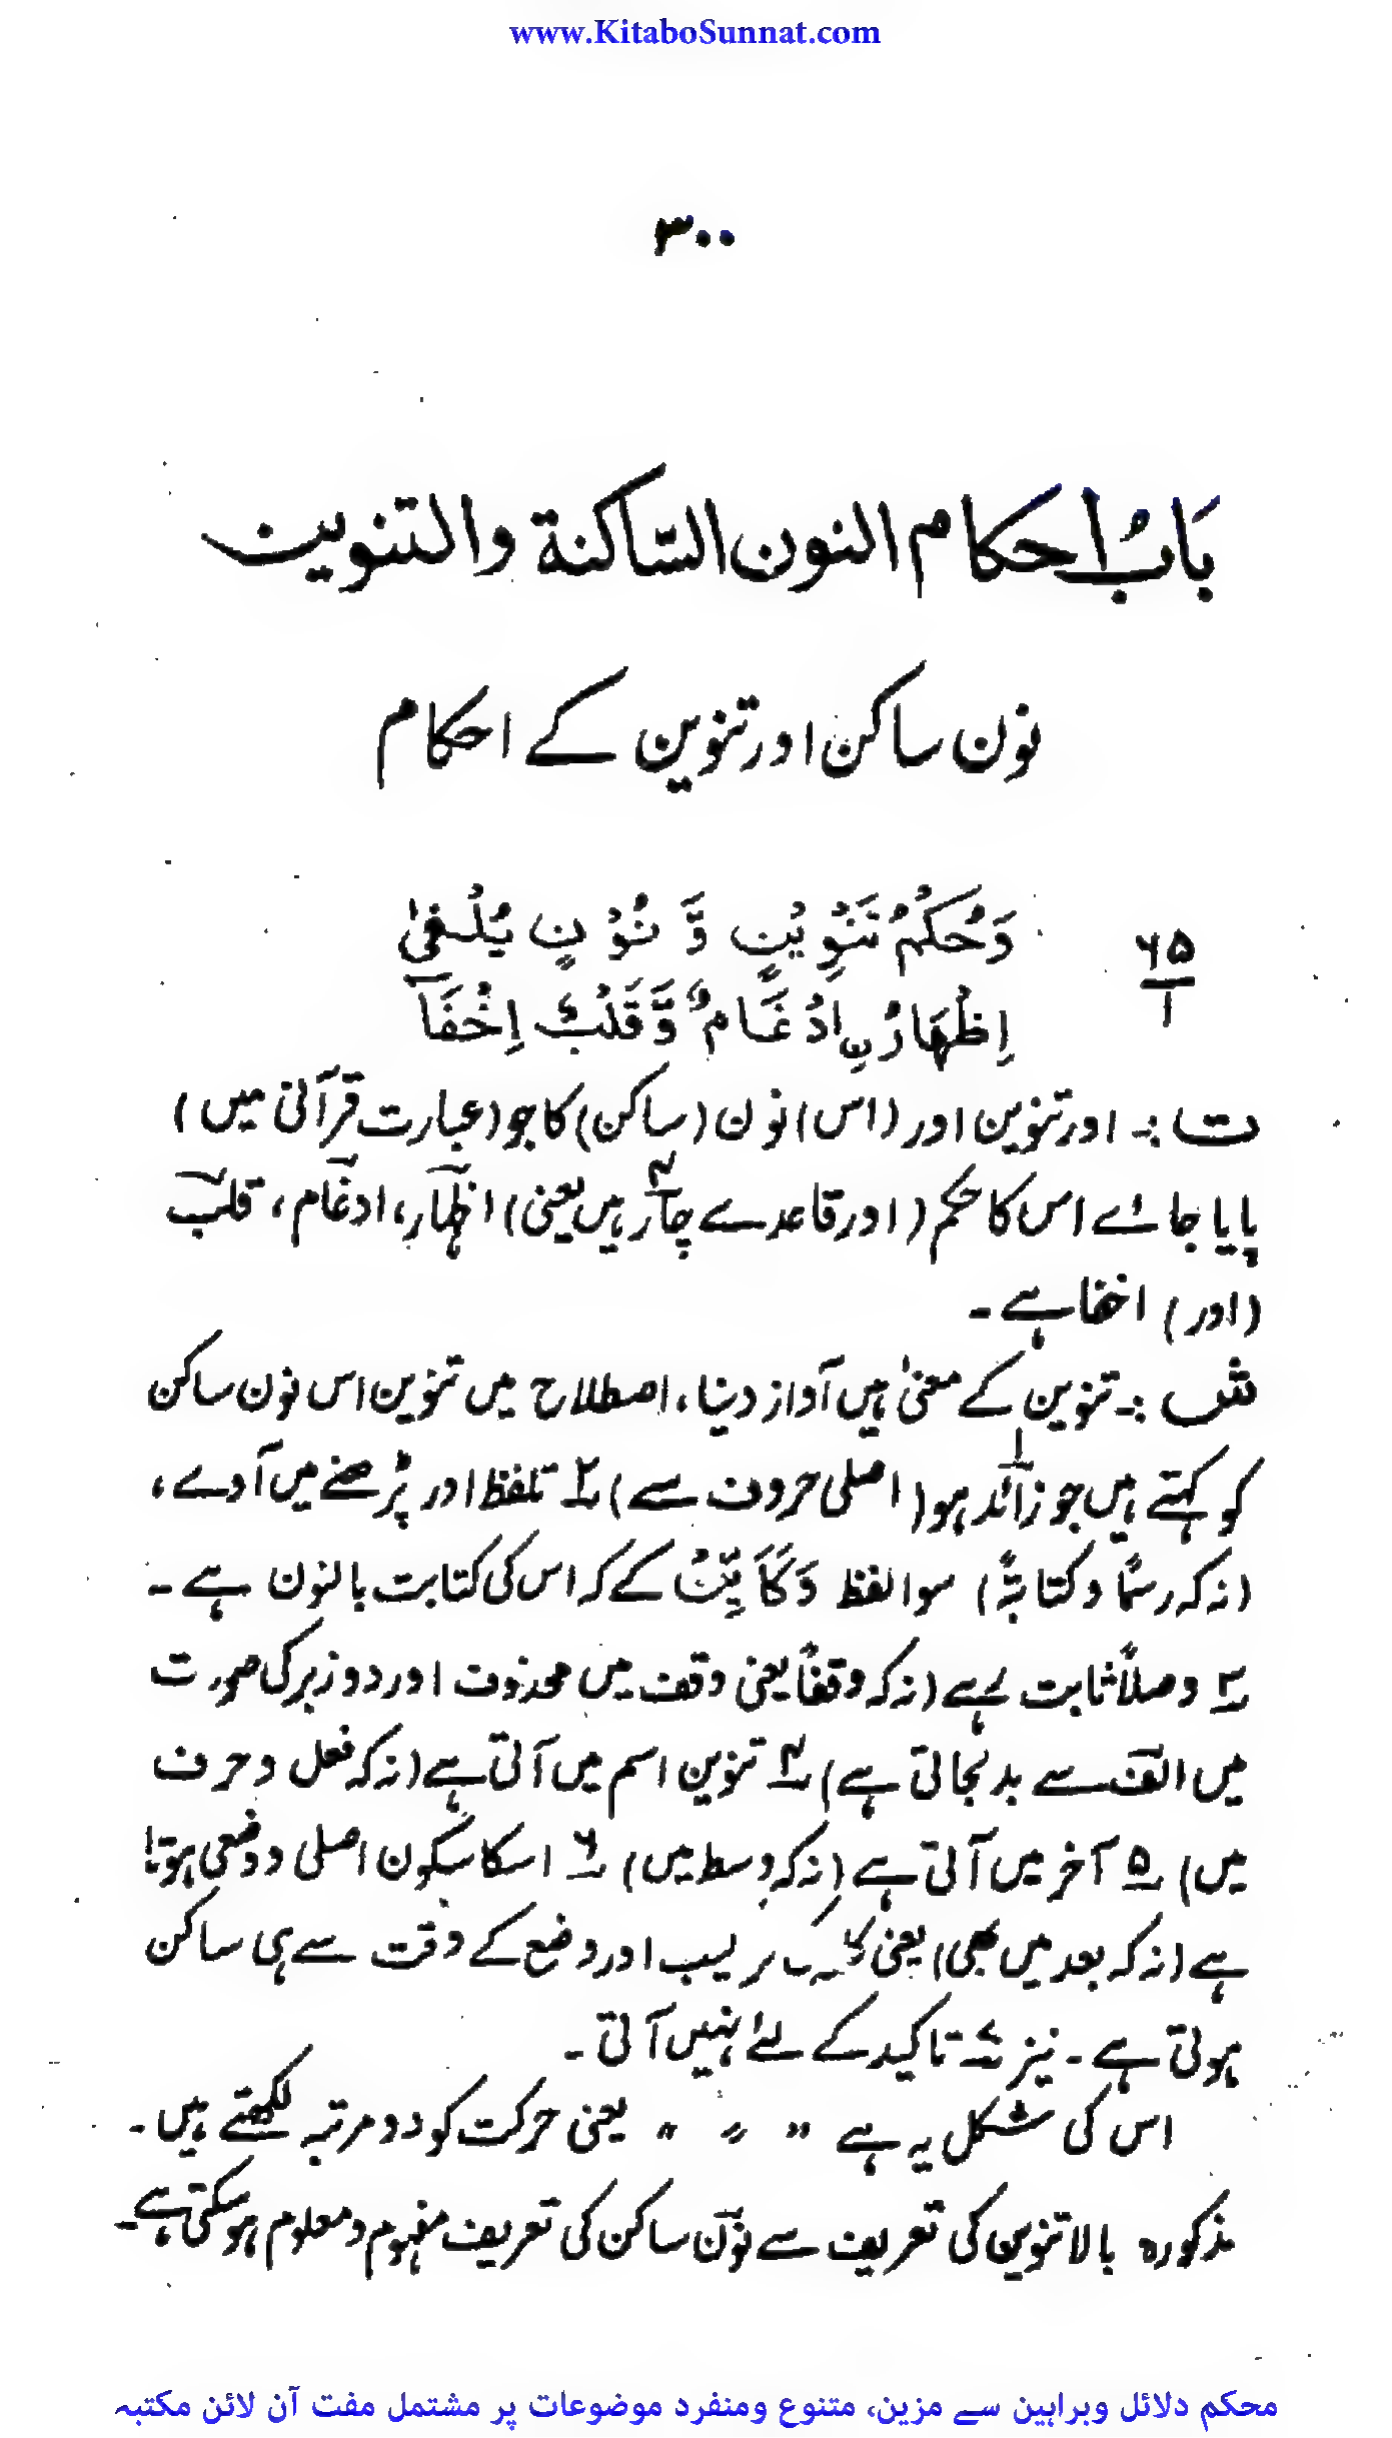 www.KitaboSunnat.com
۳۰۰
بَابُ احكام النون السّاكنة والتنوين
نون ساکن اور تنوین کے احکام
وَحُكْمُ تَنْوِيْنٍ وَّ نُوْنٍ يُلْفىٰ
۶۵
۱
اِظْهَارُنِ ادْغَامٌ وَّقَلْبٌ اِخْفَآ
ت :۔ اور تنوین اور (اس) نون (ساکن) کا جو (عبارت قرآنی میں)
پایا جائے اس کا حکم (اور قاعدے چار ۴ ہیں یعنی) اظہار، ادغام، قلب
(اور) اخفا ہے ۔
ش :۔ تنوین کے معنیٰ ہیں آواز دینا، اصطلاح میں تنوین اس نون ساکن
کو کہتے ہیں جو ۱ زائد ہو (اصلی حروف سے) ۲ تلفظ اور پڑھنے میں آوے،
(نہ کہ رسمًا و کتابۃً) سوا لفظ وَكَاَيِّنْ کے کہ اس کی کتابت بالنون ہے ۔
۳ وصلاً ثابت ہے (نہ کہ وقفاً یعنی وقف میں محذوف اور دو زبر کی صورت
میں الف سے بدلجاتی ہے) ۴ تنوین اسم میں آتی ہے (نہ کہ فعل و حرف
میں) ۵ آخر میں آتی ہے (نہ کہ وسط میں) ۶ اسکا سکون اصلی و وضعی ہوتا
ہے (نہ کہ بعد میں بھی) یعنی اور وضع کے وقت سے ہی ساکن
ہوتی ہے ۔ نیز ۷ تاکید کے لئے نہیں آتی ۔
اس کی شکل یہ ہے " ٍ " یعنی حرکت کو دو مرتبہ لکھتے ہیں ۔
مذکورہ بالا تنوین کی تعریف سے نون ساکن کی تعریف مفہوم و معلوم ہو سکتی ہے ۔
محکم دلائل وبراہین سے مزین، متنوع ومنفرد موضوعات پر مشتمل مفت آن لائن مکتبہ